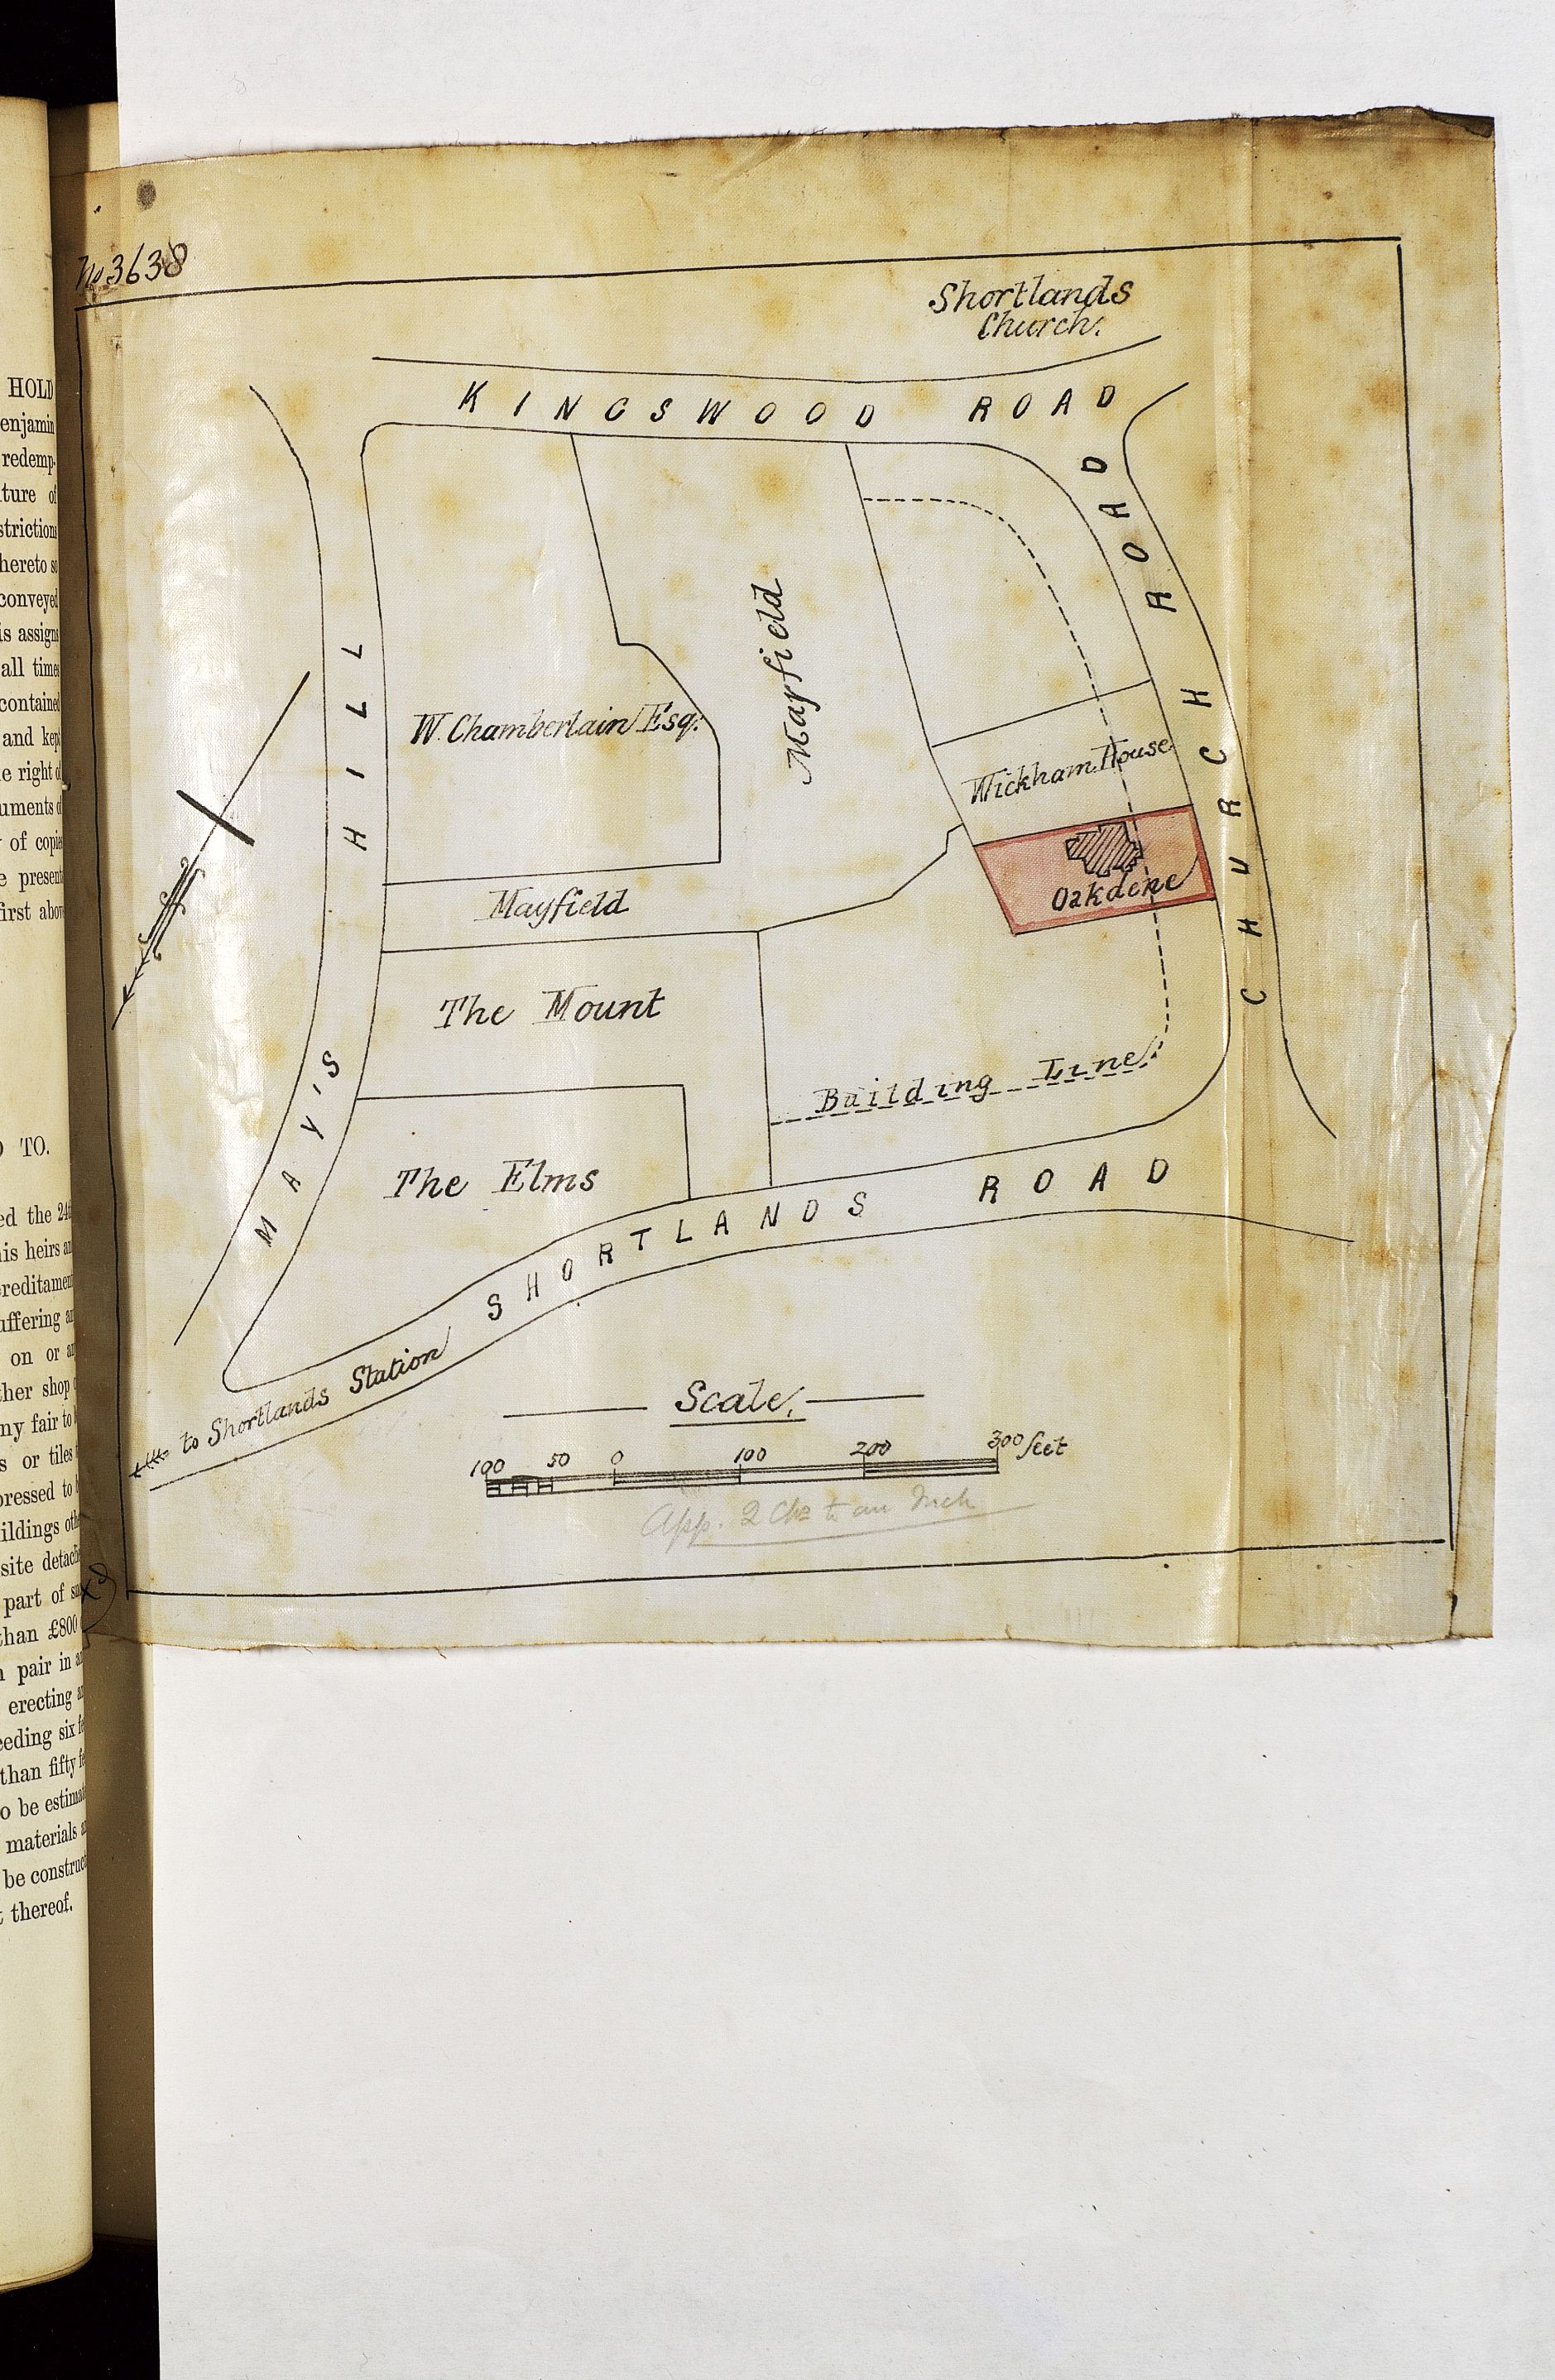 HOLD
enjamin
redemp-
ture of
strictions
hereto so
conveyed
is assigns
all times
contained
and kept
e right of
uments of
of copies
e present
first above
TO.
ed the 24th
his heirs an
ereditament
uffering an
on or an
ther shop o
ny fair to b
s or tiles
pressed to b
ildings oth
site detach
part of su
than £800
pair in a
erecting a
eeding six f
than fifty fe
o be estimat
materials a
be construct
thereof.
No 3638
Shortlands
Church.
KINGSWOOD ROAD
CHURCH ROAD
MAY'S HILL
W. Chamberlain Esq.
Mayfield
Wickham House
Oakdene
Mayfield
The Mount
Building Line
The Elms
SHORTLANDS ROAD
to Shortlands Station
Scale.
100 50 0 100 200 300 feet
App. 2 Chs to an Inch